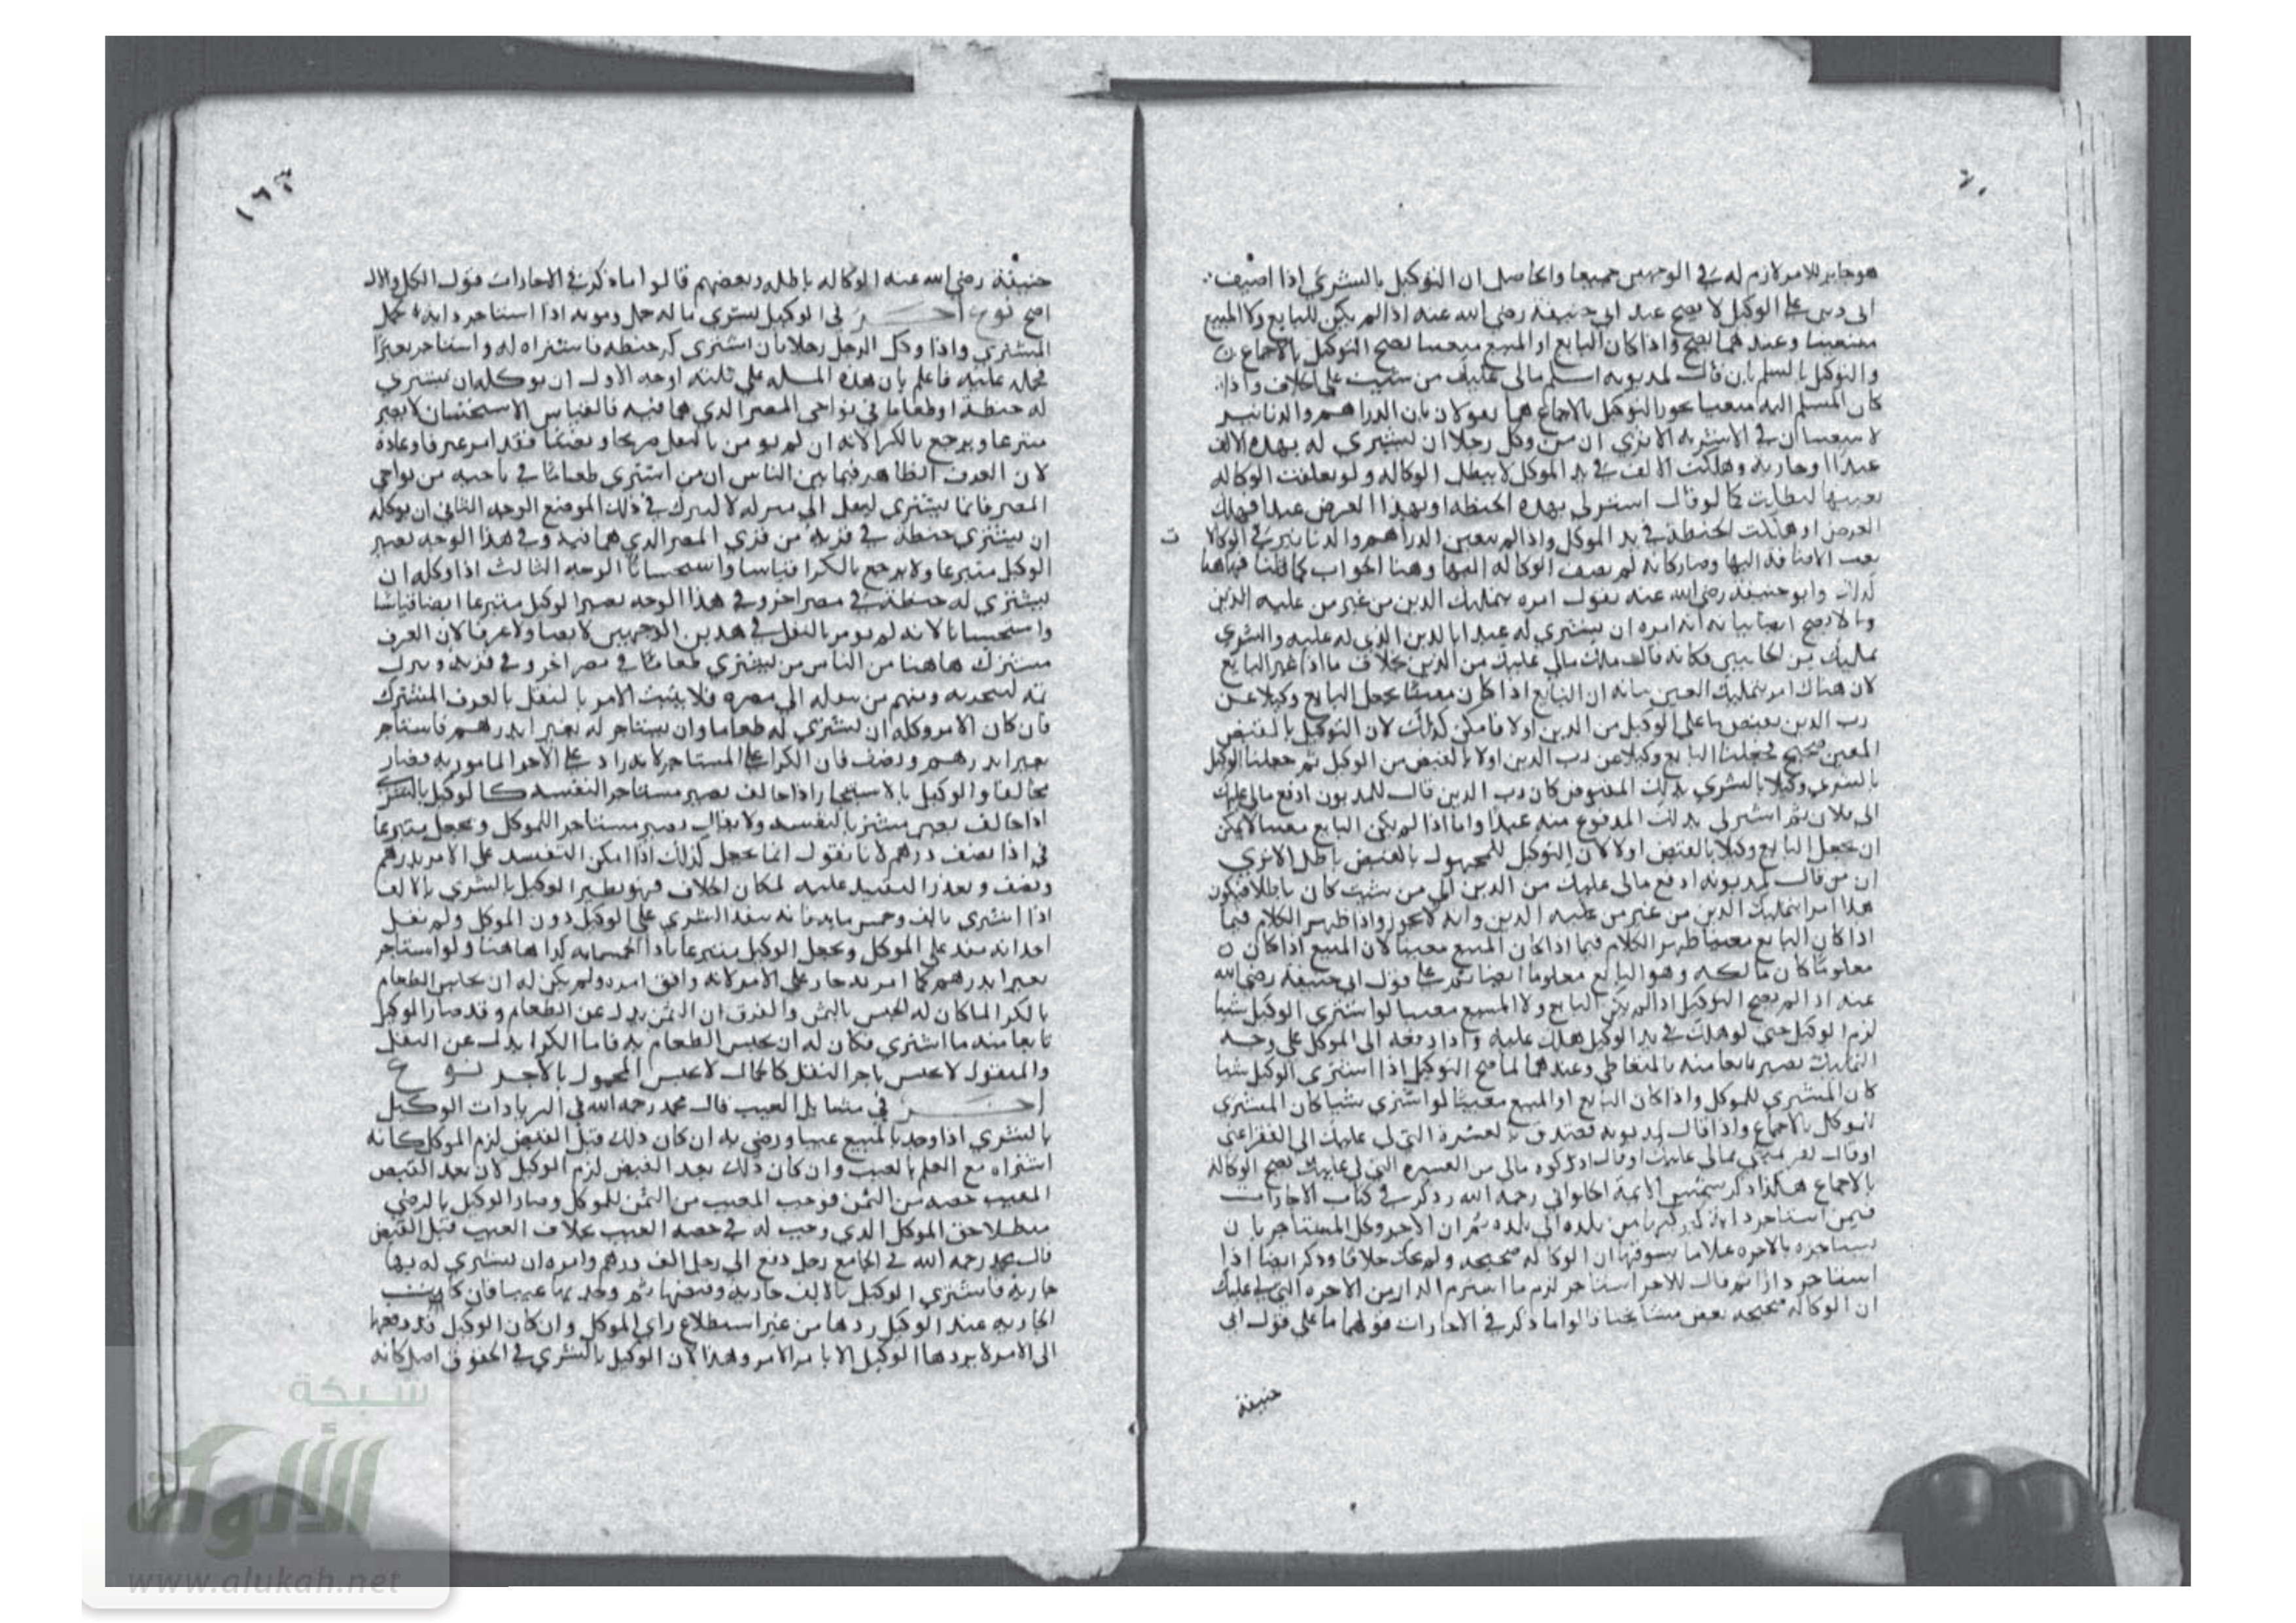 هو جايز للامر لازم له في الوجهين جميعا والحاصل ان التوكيل بالشري اذا اضيف
الى دين على الوكيل لا يصح عند ابي حنيفة رضي الله عنه اذا لم يكن للبايع ولا المبيع
متعينا وعندهما يصح واذا كان البايع او المبيع متعينا يصح التوكيل بالاجماع
والتوكيل بالسلم بان قال لمديونه اسلم مالي عليك من شيت على الخلاف واذا
كان المسلم اليه متعينا يجوز التوكيل بالاجماع هما يقولان بان الدراهم والدنانير
لا يتعينان في الاشريه الا تري ان من وكل رجلا ان يشتري له بهذه الالف
عبدا او جاريه وهلكت الالف في يد الموكل لا يبطل الوكاله ولو تعلقت الوكاله
بعينها لبطلت كما لو قال اشتر لي بهذه الحنطه او بهذا العرض عبدا فهلك
العرض او هلكت الحنطة في يد الموكل واذا لم يتعين الدراهم والدنانير في الوكالا
ت
بعد الاضافه اليها وصار كانه لم يضف الوكاله اليها وهنا الجواب كما قلنا فهاهنا
كذلك وابو حنيفه رضي الله عنه يقول امره بتمليك الدين من غير من عليه الدين
وما لا يصح بيانه انه امره ان يشتري له عبدا بالدين الذي له عليه والشري
تمليك من الجانبين فكانه قال ملك مالي عليك من الدين بخلاف ما اذا عين البايع
لان هناك امر بتمليك العين بيانه ان البايع اذا كان معينا يجعل البايع وكيلا عن
رب الدين بقبض ما على الوكيل من الدين اولا فامكن كذلك لان التوكيل بالقبض
المعين صحيح فجعلنا البايع وكيلا عن رب الدين اولا بالقبض من الوكيل ثم جعلنا الوكيل
بالشري وكيلا بالشري بذلك المقبوض كان رب الدين قال للمديون ادفع مالي عليك
الى فلان ثم اشتر لي بذلك المدفوع منه عبدا واما اذا لم يكن البايع معينا لا يمكن
ان نجعل البايع وكيلا بالقبض اولا لان التوكيل للمجهول بالقبض باطل الا تري
ان من قال لمديونه ادفع مالي عليك من الدين الى من شيت كان باطلا فيكون
هذا امرا بتمليك الدين من غير من عليه الدين وانه لا يجوز واذا ظهر الكلام فيما
اذا كان البايع معينا ظهر الكلام فيما اذا كان المبيع معينا لان المبيع اذا كان
معلوما كان مالكه وهو البايع معلوما ايضا ثم على قول ابي حنيفة رضي الله
عنه اذا لم يصح التوكيل اذا لم يكن البايع ولا المبيع معينا لو اشتري الوكيل شيا
لزم الوكيل حتى لو هلك في يد الوكيل هلك عليه واذا دفعه الى الموكل على وجه
التمليك يصير بايعا منه بالتعاطي وعندهما لما صح التوكيل اذا اشتري الوكيل شيا
كان المشتري للموكل واذا كان البايع او المبيع معينا لو اشتري شيا كان المشتري
للموكل بالاجماع واذا قال لمديونه تصدق بالعشرة التي لي عليك الى الفقرا عني
او قال كفر يميني بمالي عليك او قال اد زكوه مالي من العشره التي لي عليك تصح الوكاله
بالاجماع هكذا ذكر شمس الايمة الحلواني رحمه الله وذكر في كتاب الاجارات
فيمن استاجر دابة من بلده الى بلده ثم ان الاجر وكل المستاجر بان
يستاجر بالاجره غلاما يسوقها ان الوكاله صحيحه ولم يحك خلافا وذكر ايضا اذا
استاجر دارا ثم قال للاجر استاجر لزم ما استرم الدار من الاجره التي لي عليك
ان الوكاله صحيحه بعض مشايخنا قالوا ما ذكر في الاجارات قولهما ما على قول ابي
حنيفة
١٦٣
حنيفة رضي الله عنه الوكاله باطله وبعضهم قالوا ما ذكر في الاجارات قول الكل
اصح نوع اخر في الوكيل يشتري ما له حمل ومونه اذا استاجر دابة يحمل
المشتري واذا وكل الرجل رجلا بان اشتري كر حنطه فاشتراه له واستاجر بعيرا
فحمله عليه فاعلم بان هذه المسله على ثلثه اوجه الاول ان يوكله ان يشتري
له حنطة او طعاما في نواحي المصر الذي هما فيه فالقياس الاستحسان لا يصير
متبرعا ويرجع بالكرا لانه ان لم يومر بالنقل صريحا ونصا فقد امر عرفا وعادة
لان العرف الظاهر فيما بين الناس ان من اشتري طعاما في ناحيه من نواحي
المصر فانما يشتري لينقل الى منزله لا ليترك في ذلك الموضع الوجه الثاني ان يوكله
ان يشتري حنطة في قرية من قري المصر الذي هما فيه وفي هذا الوجه يصير
الوكيل متبرعا ولا يرجع بالكرا قياسا واستحسانا الوجه الثالث اذا وكله ان
يشتري له حنطة في مصر اخر وفي هذا الوجه يصير الوكيل متبرعا ايضا قياسا
واستحسانا لانه لم يومر بالنقل في هذين الوجهين لا نصا ولا عرفا لان العرف
مشترك هاهنا من الناس من يشتري طعاما في مصر اخر وفي قرية ويترك
ثمه ومنهم من ينقله الى مصره فلا يثبت الامر بالنقل بالعرف المشترك
فان كان الامر وكله ان يشتري له طعاما وان يستاجر له بعيرا بدرهم فاستاجر
بعيرا بدرهم ونصف فان الكرا على المستاجر لانه زاد على الاجر المامور به فصار
مخالفا والوكيل بالاستيجار اذا خالف يصير مستاجرا لنفسه كالوكيل بالشري
اذا خالف يصير مشتريا لنفسه ولا يقال يصير مستاجرا للموكل ويجعل متبرعا
في اذا نصف درهم لانا نقول انما يجعل كذلك اذا امكن التنفيذ على الامر بدرهم
ونصف وتعذر التنفيذ عليه لمكان الخلاف فهو نظير الوكيل بالشري بالالف
اذا اشتري بالف وخمس مايه فانه ينفذ الشري على الوكيل دون الموكل ولم نقل
احد انه ينفذ على الموكل ويجعل الوكيل متبرعا باذا الخمسمايه كذا هاهنا ولو استاجر
بعيرا بدرهم كما امر به جاز على الامر لانه وافق امره ولم يكن له ان يحبس الطعام
بالكرا كما كان له الحبس بالثمن والفرق ان الثمن بدل عن الطعام وقد صار الموكيل
بايعا منه ما اشتري فكان له ان يحبس الطعام به فاما الكرا بدل عن النقل
والمنقول لا يحبس باجر النقل كالحمال لا يحبس المحمول بالاجر نوع
اخر في مسايل العيب قال محمد رحمه الله في الزيادات الوكيل
بالشري اذا وجد بالمبيع عيبا ورضي به ان كان ذلك قبل القبض لزم الموكل كانه
اشتراه مع العلم بالعيب وان كان ذلك بعد القبض لزم الوكيل لان بعد القبض
المعيب حصه من الثمن فوجب المعيب من الثمن للموكل وصار الوكيل بالرضي
مبطلا حق الموكل الذي وجب له في حصه العيب بخلاف العيب قبل القبض
قال محمد رحمه الله في الجامع رجل دفع الى رجل الف درهم وامره ان يشتري له بها
جارية فاشتري الوكيل بالالف جاريه وقبضها ثم وجد بها عيبا فان كانت
الجاريه عند الوكيل ردها من غير استطلاع راي الموكل وان كان الوكيل قد دفعها
الى الامر لا يردها الوكيل الا بامر الامر وهذا لان الوكيل بالشري في الحقوق اصل كانه
شبكة
الألوكة
www.alukah.net